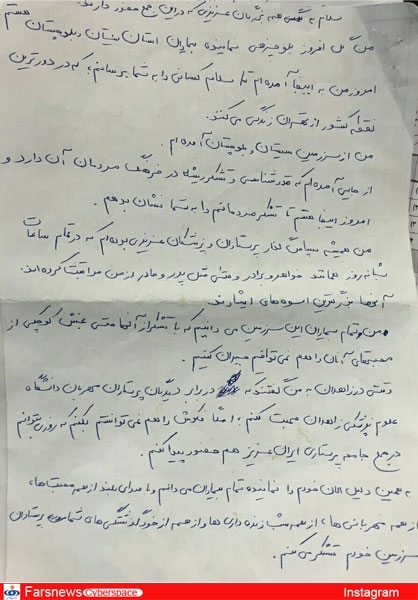 سلام به همه بزرگان عزیزی که در این جمع حضور دارند.
من گل افروز بلوچزهی نماینده بیماران استان سیستان و بلوچستان هستم
امروز من به اینجا آمده ام تا سلام کسانی را به شما برسانم، که در دورترین
نقطه کشور از تهران زندگی می کنند.
من از سرزمین سیستان و بلوچستان آمده ام.
از جایی آمده ام که قدرشناسی و تشکر ریشه در فرهنگ مردمان آن دارد و
امروز اینجا هستم تا تشکر مردمانم را به شما نشان بدهم.
من همیشه سپاس گذار پرستاران و پزشکان عزیزی بوده ام که در تمام ساعات
شبانه روز همانند خواهر و برادر و حتی مثل پدر و مادر از من مراقبت کرده اند.
آنها بزرگترین اسوه های ایثارند.
من و تمام بیماران این سرزمین می دانیم که با تشکر از آنها حتی بخش کوچکی از
محبتهای آنان را هم نمی توانیم جبران کنیم.
وقتی در زاهدان به من گفتند که در برابر دیدگان پرستاران مهربان دانشگاه
علوم پزشکی زاهدان صحبت کنم؛ اصلا فکرش را هم نمی توانستم بکنم که روزی بتوانم
در جمع جامعه پرستاری ایران عزیز هم حضور پیدا کنم.
به همین دلیل الان خودم را نماینده تمام بیماران می دانم و با صدای بلند از همه محبت ها،
از همه مهربانی ها، از همه شب زنده داری ها و از همه از خودگذشتگی های تمام پرستاران
سرزمین خودم تشکر می کنم.
Farsnews Cyberspace
Instagram